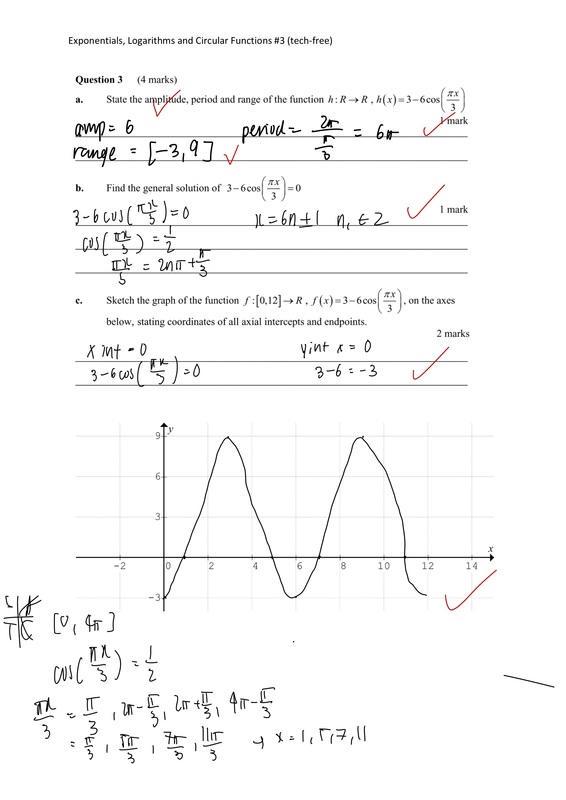 Exponentials, Logarithms and Circular Functions #3 (tech-free)
Question 3 (4 marks)
a. State the amplitude, period and range of the function h : R → R , h(x) = 3 − 6cos(πx/3)
1 mark
amp = 6 period = 2π/(π/3) = 6π
range = [-3, 9]
b. Find the general solution of 3 − 6cos(πx/3) = 0
1 mark
3 - 6 cos(πx/3) = 0 x = 6n ± 1 n, ∈ Z
cos(πx/3) = 1/2
πx/3 = 2nπ ± π/3
c. Sketch the graph of the function f : [0,12] → R , f(x) = 3 − 6cos(πx/3), on the axes
below, stating coordinates of all axial intercepts and endpoints.
2 marks
x int = 0 y int x = 0
3 - 6 cos(πx/3) = 0 3 - 6 = -3
y
9
6
3
x
-2 0 2 4 6 8 10 12 14
-3
T C
[0, 4π]
cos(πx/3) = 1/2
πx/3 = π/3, 2π - π/3, 2π + π/3, 4π - π/3
= π/3, 5π/3, 7π/3, 11π/3 → x = 1, 5, 7, 11